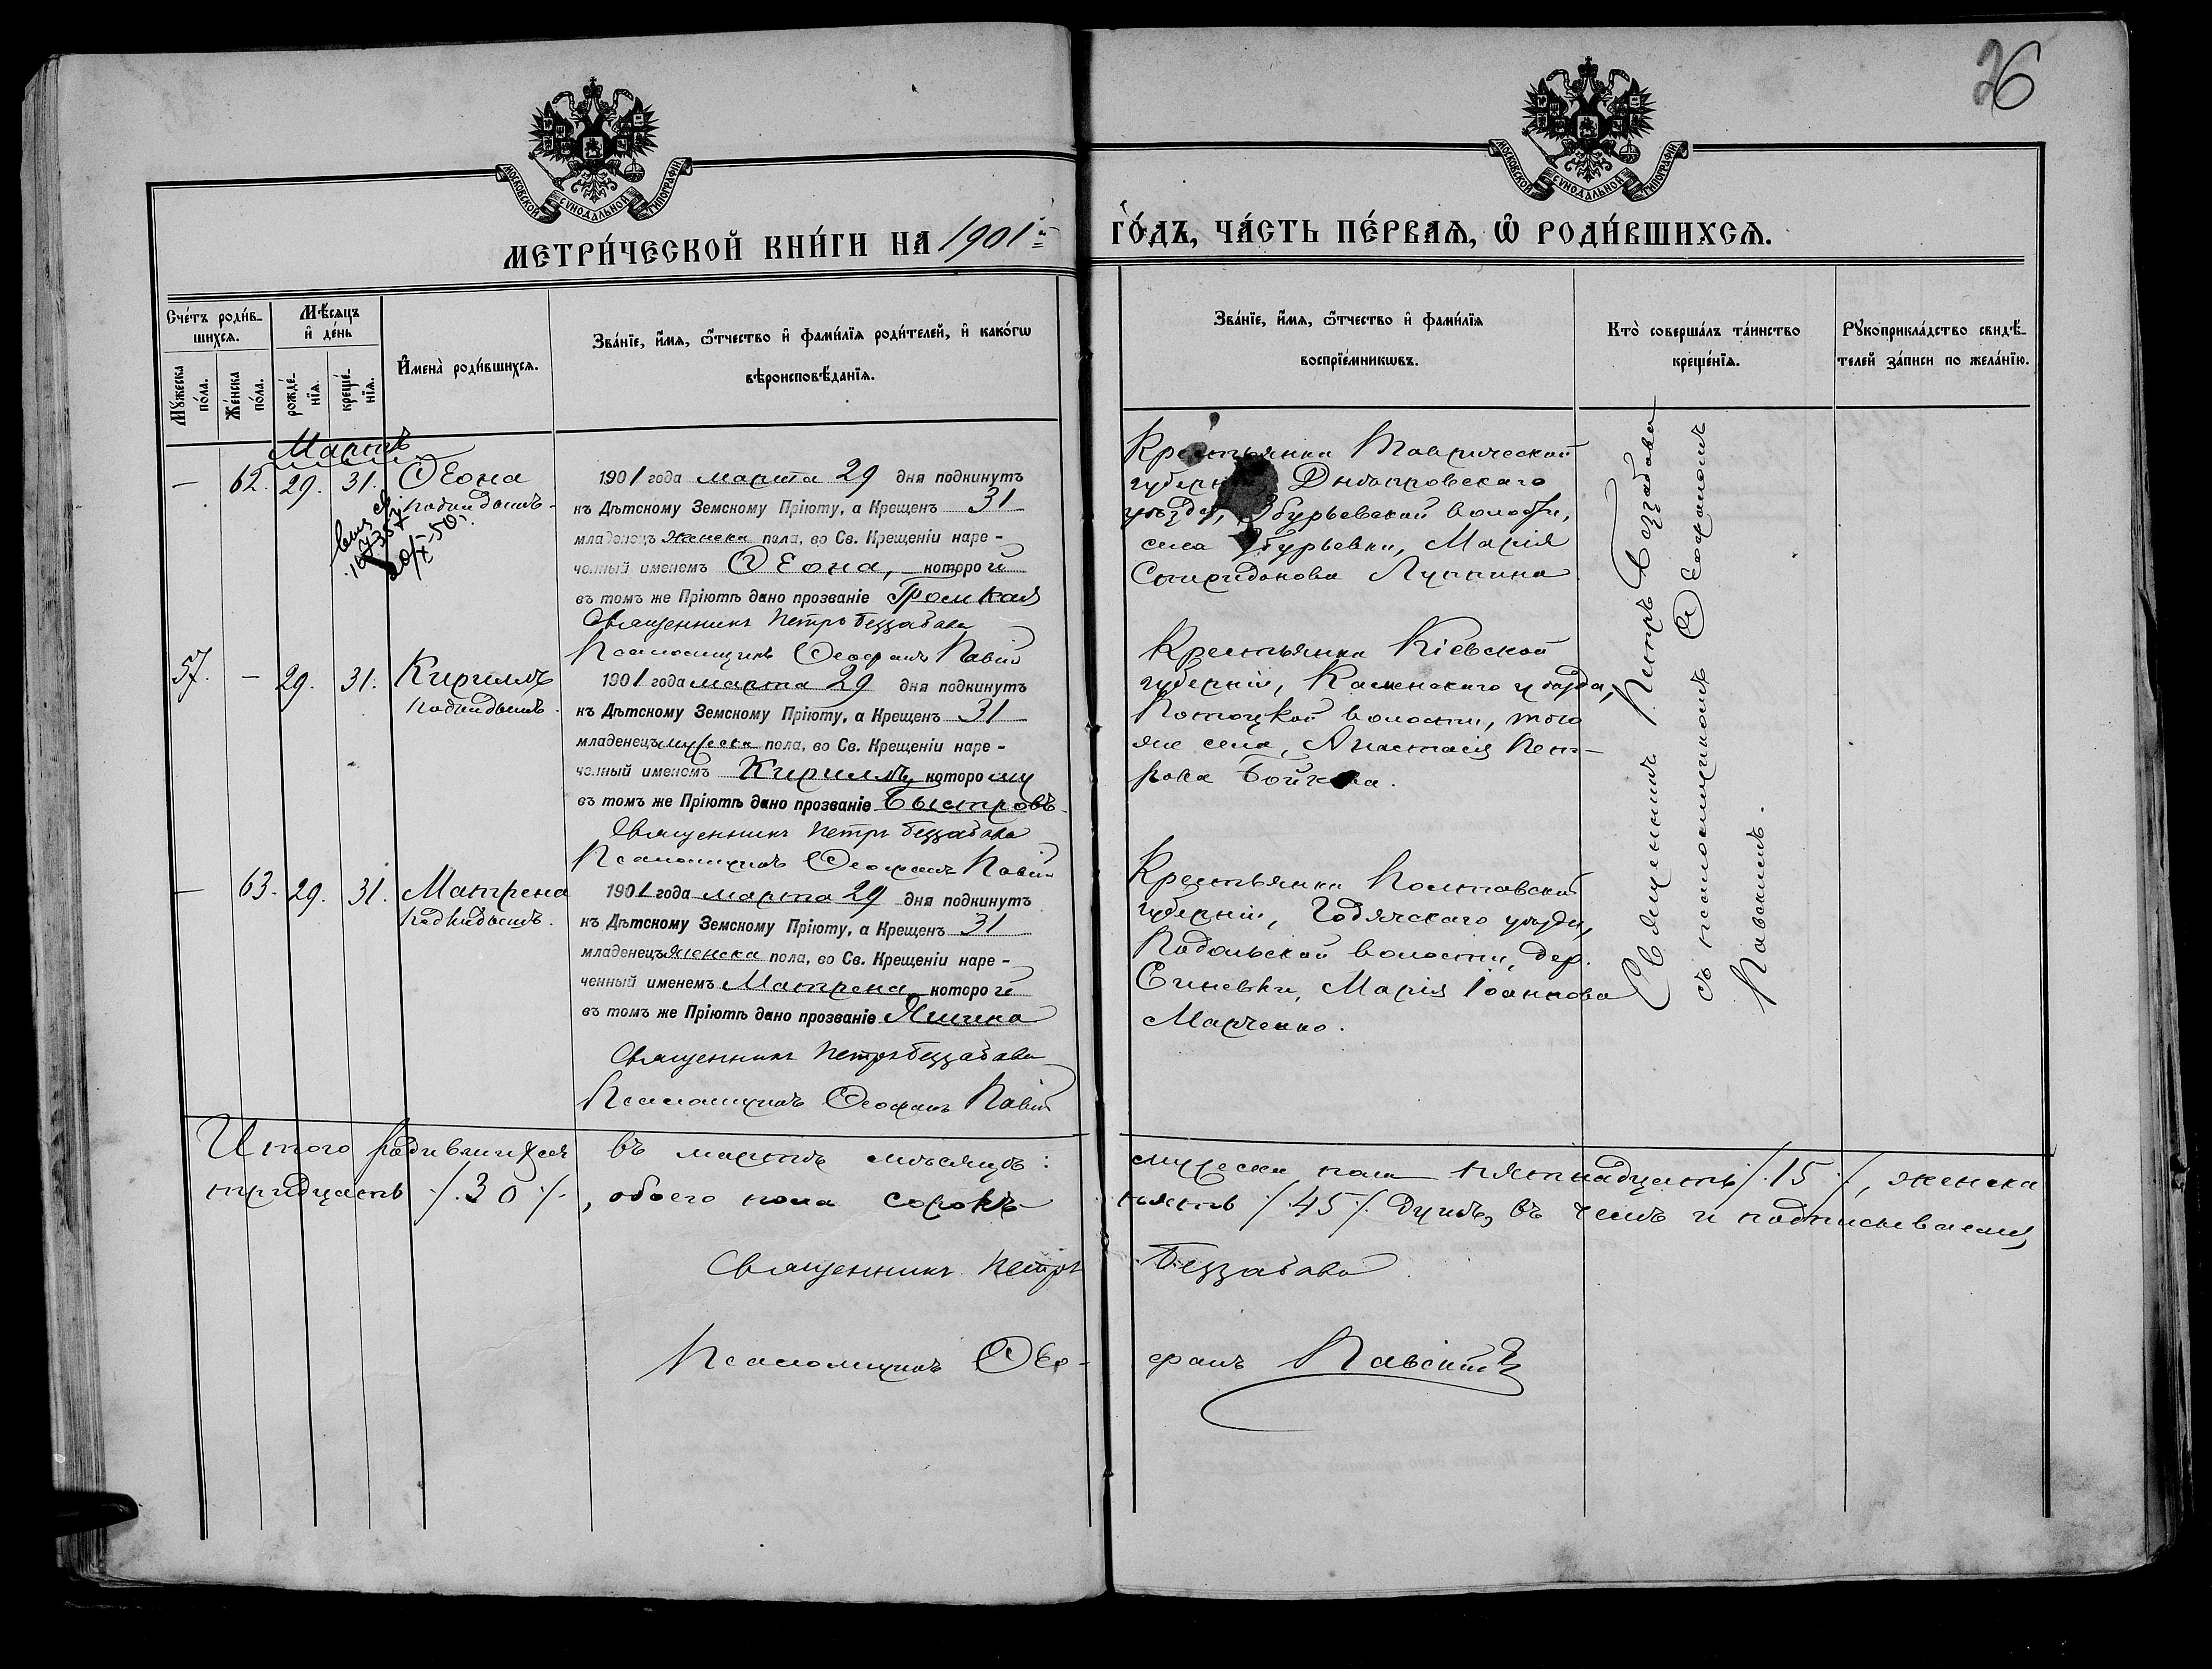 26
МОСКОВСКОЙ СУНОДАЛЬНОЙ ТИПОГРАФІИ
МОСКОВСКОЙ СУНОДАЛЬНОЙ ТИПОГРАФІИ
МЕТРИ́ЧЕСКОЙ КНИ́ГИ НА 1901й ГО́ДЪ, ЧА́СТЬ ПЕ́РВАѦ, Ѡ РОДИ́ВШИХСѦ.
Сче́тъ роди́в-
шихсѧ.
Мꙋ́жеска
по́ла.
Же́нска
по́ла.
Мѣ́сѧцъ
и҆ де́нь
рожде́-
нїѧ.
креще́-
нїѧ.
И҆мена̀ роди́вшихсѧ.
Зва́нїе, и҆́мѧ, ѿ́тчество и҆ фами́лїѧ роди́телей, и҆ како́гѡ
вѣроисповѣ́данїѧ.
Зва́нїе, и҆́мѧ, ѿ́тчество и҆ фами́лїѧ
воспрїе́мникѡвъ.
Кто̀ соверша́лъ та́инство
креще́нїѧ.
Рꙋкоприкла́дство свидѣ́-
телей за́писи по жела́нїю.
Мартъ
— 62. 29. 31. Ѳеона
подкидышъ.
1901 года марта 29 дня подкинутъ
къ Дѣтскому Земскому Пріюту, а Крещенъ 31
младенецъ женска пола, во Св. Крещеніи наре-
ченный именемъ Ѳеона, которой
въ томъ же Пріютѣ дано прозваніе Громкая
Священникъ Петръ Беззабава
Псаломщикъ Ѳеофанъ Павскій
Крестьянка Таврической
губерніи Днѣпровскаго
уѣзда, Збурьевской волости,
села Збурьевки, Марія
Спиридонова
57. — 29. 31. Кириллъ
подкидышъ.
1901 года марта 29 дня подкинутъ
къ Дѣтскому Земскому Пріюту, а Крещенъ 31
младенецъ мужеска пола, во Св. Крещеніи наре-
ченный именемъ Кириллъ, которому
въ томъ же Пріютѣ дано прозваніе Быстровъ
Священникъ Петръ Беззабава
Псаломщикъ Ѳеофанъ Павскій
Крестьянка Кіевской
губерніи, Каневскаго уѣзда,
Потоцкой волости, того
же села, Анастасія Пет-
рова Бойкова.
— 63. 29. 31. Матрена
подкидышъ.
1901 года марта 29 дня подкинутъ
къ Дѣтскому Земскому Пріюту, а Крещенъ 31
младенецъ женска пола, во Св. Крещеніи наре-
ченный именемъ Матрена, которой
въ томъ же Пріютѣ дано прозваніе
Священникъ Петръ Беззабава
Псаломщикъ Ѳеофанъ Павскій
Крестьянка Полтавской
губерніи, Гадячскаго уѣзда,
Подольской волости, дер.
Синевки, Марія Іоаннова
Марченко.
Священникъ Петръ Беззабава
съ псаломщикомъ Ѳеофаномъ
Павскимъ.
Итого родившихся въ мартѣ мѣсяцѣ: мужеска пола пятнадцать /.15./, женска
тридцать /.30./, обоего пола сорокъ пять /.45./ душъ, въ чемъ и подписываемся
Священникъ Петръ Беззабава
Псаломщикъ Ѳео-фанъ Павскій